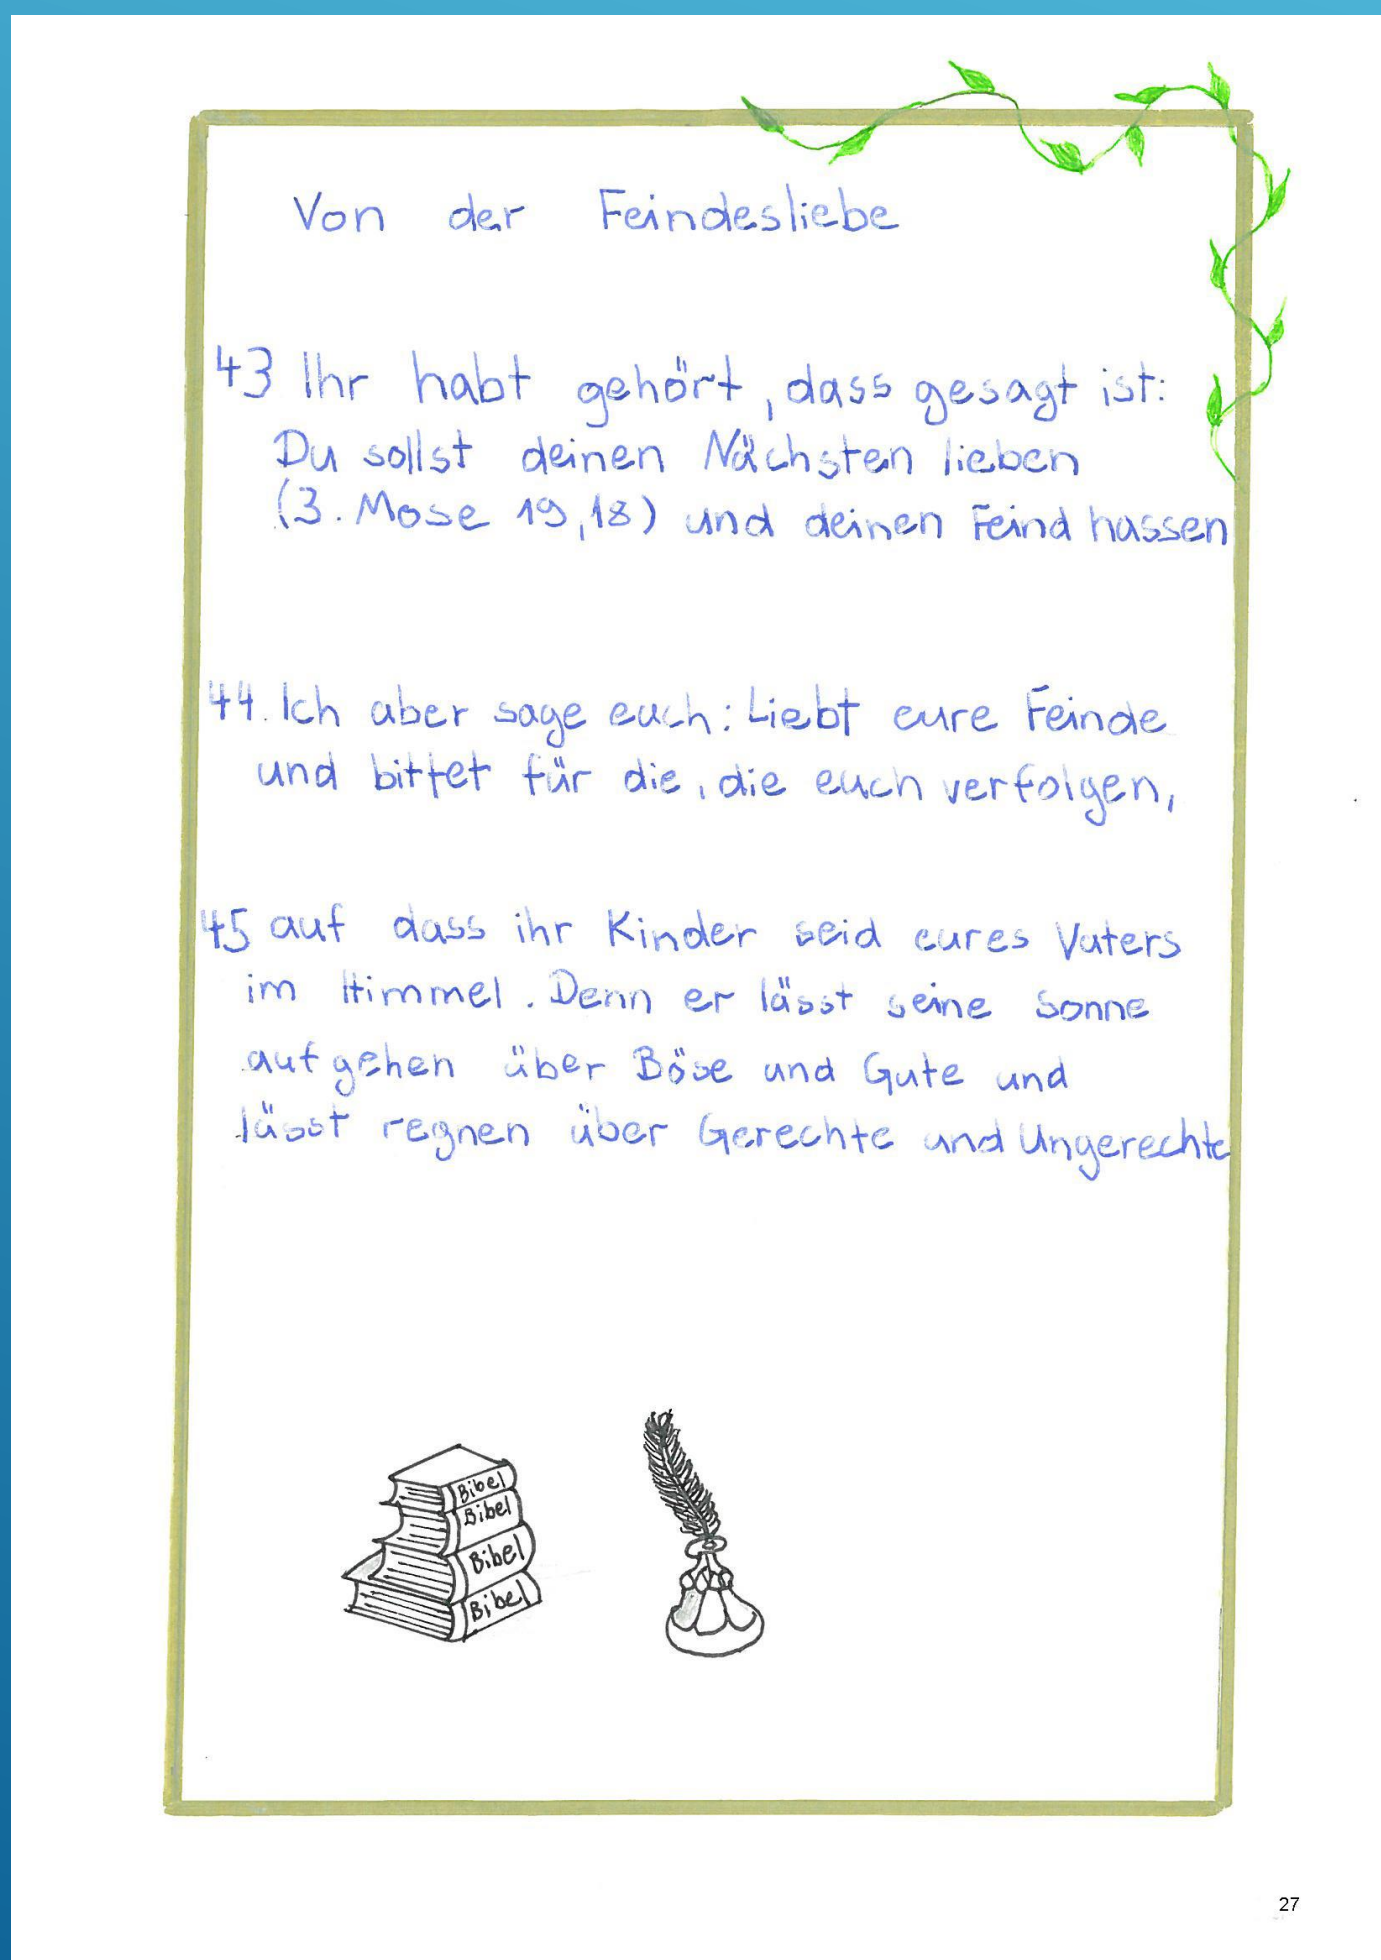 Von der Feindesliebe
43 Ihr habt gehört, dass gesagt ist:
Du sollst deinen Nächsten lieben
(3. Mose 19,18) und deinen Feind hassen
44. Ich aber sage euch: Liebt eure Feinde
und bittet für die, die euch verfolgen,
45 auf dass ihr Kinder seid eures Vaters
im Himmel. Denn er lässt seine Sonne
aufgehen über Böse und Gute und
lässt regnen über Gerechte und Ungerechte
Bibel
Bibel
Bibel
Bibel
27